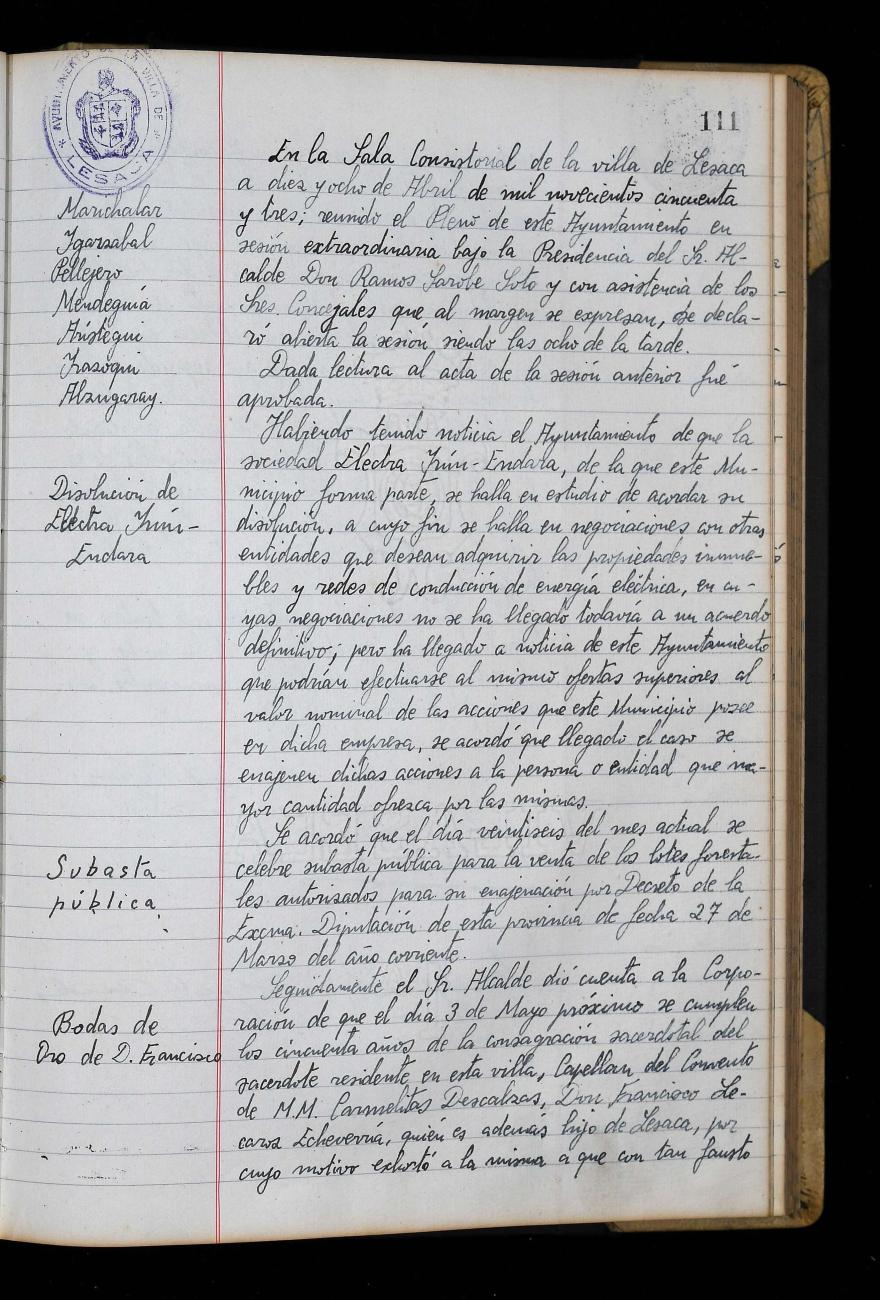 111
AYUNTAMIENTO DE LA VILLA DE
LESACA
Marichalar
Igarzabal
Pellejero
Mendeguía
Aristegui
Irazoqui
Alzugaray.
En la Sala Consistorial de la villa de Lesaca
a diez y ocho de Abril de mil novecientos cincuenta
y tres; reunido el Pleno de este Ayuntamiento en
sesión extraordinaria bajo la Presidencia del Sr. Al-
calde Don Ramos Sarobe Soto y con asistencia de los
Sres. Concejales que al margen se expresan, se decla-
ró abierta la sesión siendo las ocho de la tarde.
Dada lectura al acta de la sesión anterior fué
aprobada.
Disolución de
Electra Irún-
Endara
Habiendo tenido noticia el Ayuntamiento de que la
sociedad Electra Irún-Endara, de la que este Mu-
nicipio forma parte, se halla en estudio de acordar su
disolución, a cuyo fin se halla en negociaciones con otras
entidades que desean adquirir las propiedades inmue-
bles y redes de conducción de energía eléctrica, en cu-
yas negociaciones no se ha llegado todavía a un acuerdo
definitivo; pero ha llegado a noticia de este Ayuntamiento
que podrían efectuarse al mismo ofertas superiores al
valor nominal de las acciones que este Municipio posee
en dicha empresa, se acordó que llegado el caso se
enajenen dichas acciones a la persona o entidad que ma-
yor cantidad ofrezca por las mismas.
Subasta
pública
Se acordó que el día veintiseis del mes actual se
celebre subasta pública para la venta de los lotes foresta-
les autorizados para su enajenación por Decreto de la
Excma. Diputación de esta provincia de fecha 27 de
Marzo del año corriente.
Bodas de
Oro de D. Francisco
Seguidamente el Sr. Alcalde dió cuenta a la Corpo-
ración de que el día 3 de Mayo próximo se cumplen
los cincuenta años de la consagración sacerdotal del
sacerdote residente en esta villa, Capellan del Convento
de M.M. Carmelitas Descalzas, Don Francisco Le-
caroz Echeverría, quién es además hijo de Lesaca, por
cuyo motivo exhortó a la misma a que con tan fausto